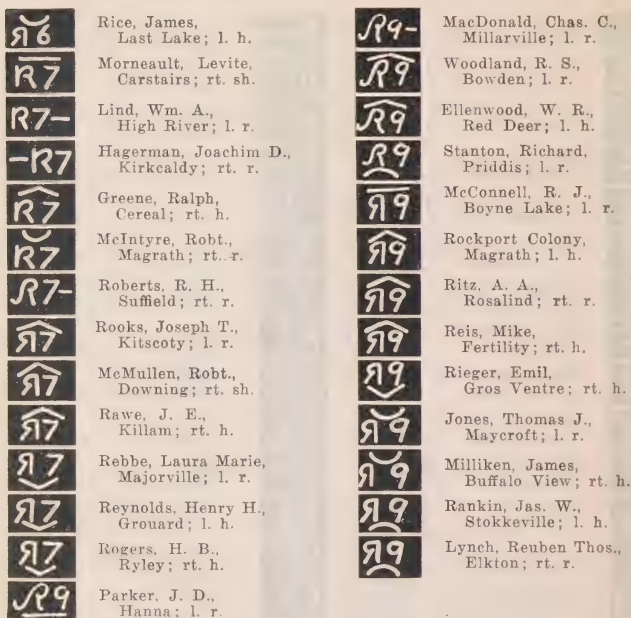 Я6 Rice, James,
Last Lake; l. h.
R7 Morneault, Levite,
Carstairs; rt. sh.
R7– Lind, Wm. A.,
High River; l. r.
–R7 Hagerman, Joachim D.,
Kirkcaldy; rt. r.
R7 Greene, Ralph,
Cereal; rt. h.
R7 McIntyre, Robt.,
Magrath; rt. r.
R7– Roberts, R. H.,
Suffield; rt. r.
Я7 Rooks, Joseph T.,
Kitscoty; l. r.
Я7 McMullen, Robt.,
Downing; rt. sh.
Я7 Rawe, J. E.,
Killam; rt. h.
Я7 Rebbe, Laura Marie,
Majorville; l. r.
Я7 Reynolds, Henry H.,
Grouard; l. h.
Я7 Rogers, H. B.,
Ryley; rt. h.
R9 Parker, J. D.,
Hanna; l. r.
R9– MacDonald, Chas. C.,
Millarville; l. r.
R9 Woodland, R. S.,
Bowden; l. r.
R9 Ellenwood, W. R.,
Red Deer; l. h.
R9 Stanton, Richard,
Priddis; l. r.
Я9 McConnell, R. J.,
Boyne Lake; l. r.
Я9 Rockport Colony,
Magrath; l. h.
Я9 Ritz, A. A.,
Rosalind; rt. r.
Я9 Reis, Mike,
Fertility; rt. h.
Я9 Rieger, Emil,
Gros Ventre; rt. h.
Я9 Jones, Thomas J.,
Maycroft; l. r.
Я9 Milliken, James,
Buffalo View; rt. h.
Я9 Rankin, Jas. W.,
Stokkeville; l. h.
Я9 Lynch, Reuben Thos.,
Elkton; rt. r.